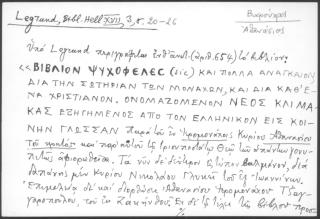 Legrand, Bibl. Hell. XVII, 3, σ. 20-26
Βαρούχας
Ἀθανάσιος
Ὑπὸ Legrand περιγράφεται (ἀριθ. 654) τὸ βιβλίον:
«ΒΙΒΛΙΟΝ ΨΥΧΟΦΕΛΕΣ (sic) ΚΑΙ ΠΟΛΛΑ ΑΝΑΓΚΑΙΟΝ
ΔΙΑ ΤΗΝ ΣΩΤΗΡΙΑΝ ΤΩΝ ΜΟΝΑΧΩΝ, ΚΑΙ ΔΙΑ ΚΑΘΕ-
ΝΑ ΧΡΙΣΤΙΑΝΟΝ. ΟΝΟΜΑΖΟΜΕΝΟΝ ΝΕΟΣ ΚΛΙΜΑ-
ΚΑΣ ΕΞΗΓΗΜΕΝΟΣ ΑΠΟ ΤΟΝ ΕΛΛΗΝΙΚΟΝ ΕΙΣ ΚΟΙ-
ΝΗΝ ΓΛΩΣΣΑΝ παρὰ τοῦ ἐν Ἱερομονάχοις Κυρίου Ἀθανασίου
τοῦ κρητὸς καὶ παρ' αὐτοῦ τῷ Θεῷ τῶν
ἀφιερωθεῖσα. Τὰ νῦν
δαπάνης μὲν Κυρίου Νικολάου Γλυκεῖ τοῦ ἐξ Ἰωαννίνων.
Ἐπιμελείᾳ δὲ καὶ διορθώσει Ἀθανασίου Ἱερομονάχου
τοῦ ἐκ Ζακύνθου. Ἐν δὲ τῷ τέλει τῆς βίβλου